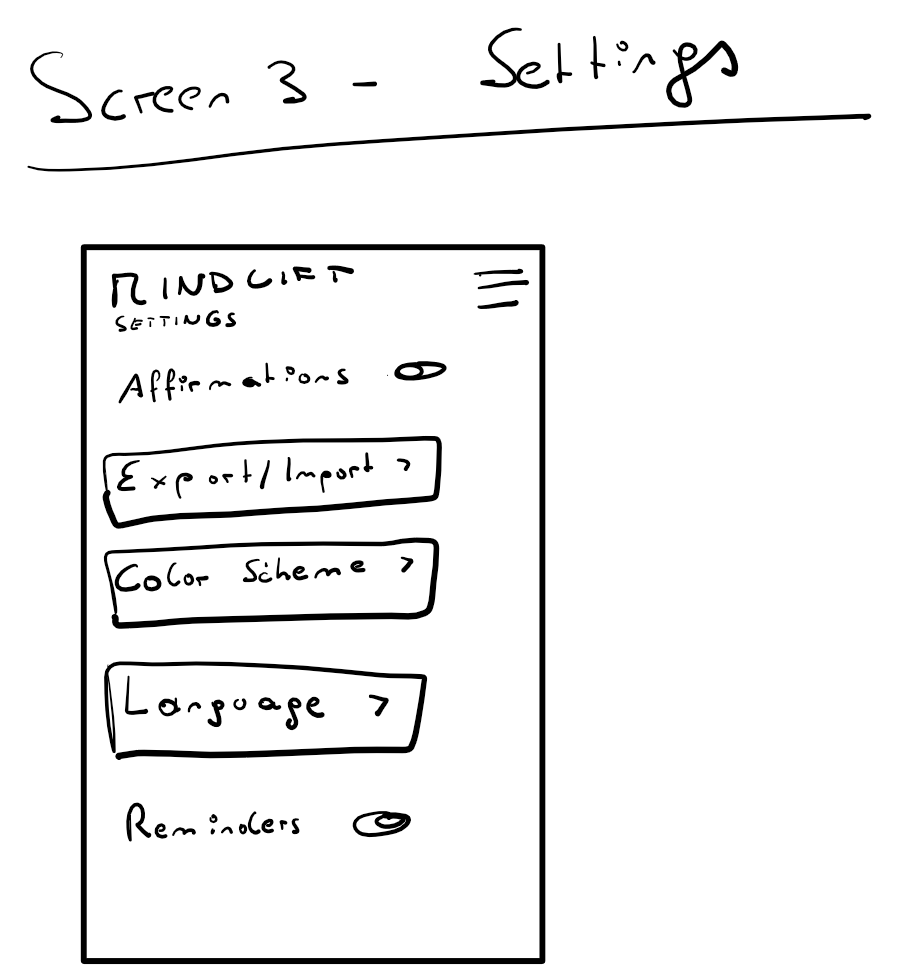 Screen 3 - Settings
MINDLIFT
SETTINGS
Affirmations
Export/Import >
Color Scheme >
Language >
Reminders